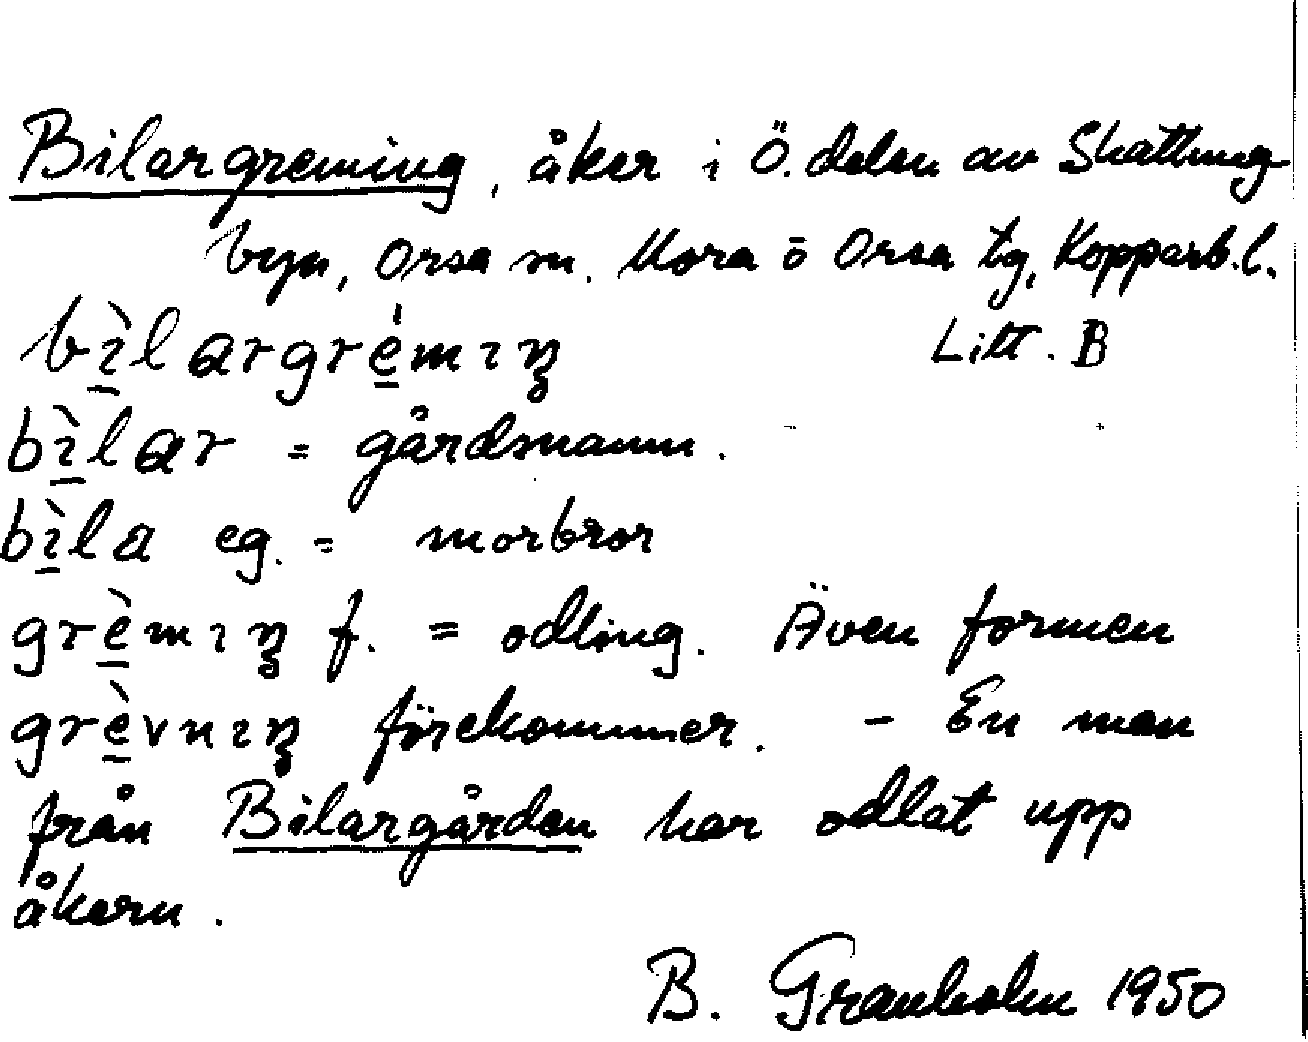 Bilargreming, åker i Ö. delen av Skattung
byn, Orsa sn. Mora o Orsa tg, Kopparb. l.
bı̱̀largrè̱mıŋ Litt. B
bı̱̀lar = gårdsnamn.
bı̱̀la eg. = morbror
grè̱mıŋ f. = odling. Även formen
grè̱vnıŋ förekommer. - En man
från Bilargården har odlat upp
åkern.
B. Granholm 1950